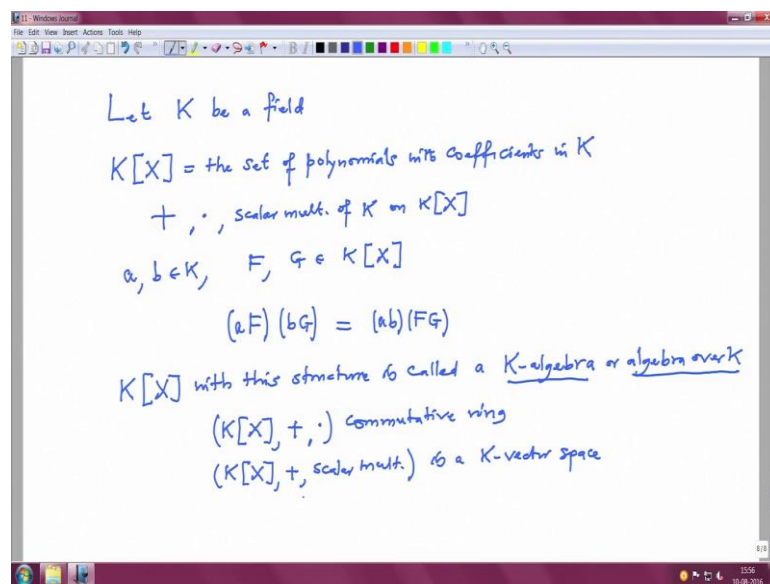 11 - Windows Journal
File Edit View Insert Actions Tools Help
Let K be a field
K[X] = the set of polynomials with coefficients in K
+ , · , scalar mult. of K on K[X]
a, b ∈ K, F, G ∈ K[X]
(aF) (bG) = (ab)(FG)
K[X] with this structure is called a K-algebra or algebra over K
(K[X], +, ·) commutative ring
(K[X], +, scalar mult.) is a K-vector space
8/8
15:56
10-08-2016